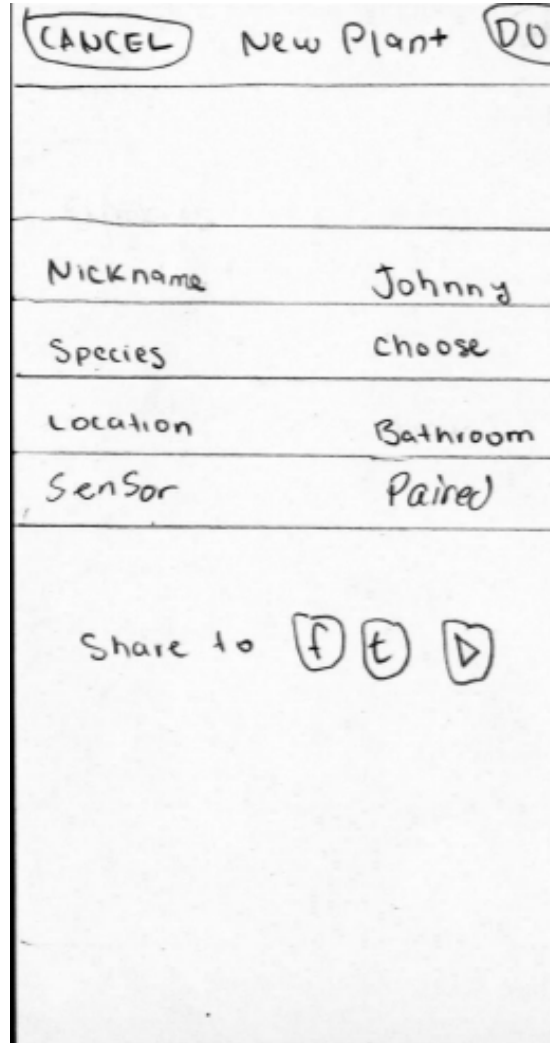 CANCEL New Plant DO
Nickname Johnny
Species choose
Location Bathroom
Sensor Paired
Share to f t